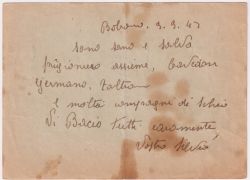 Bolzano 9.9.43
sono sano e salvo
prigioniero assieme, Cavedon
Germano, Zaltron
e molti compagni di Schio
Vi Bacio tutti caramente
Vostro Silvio